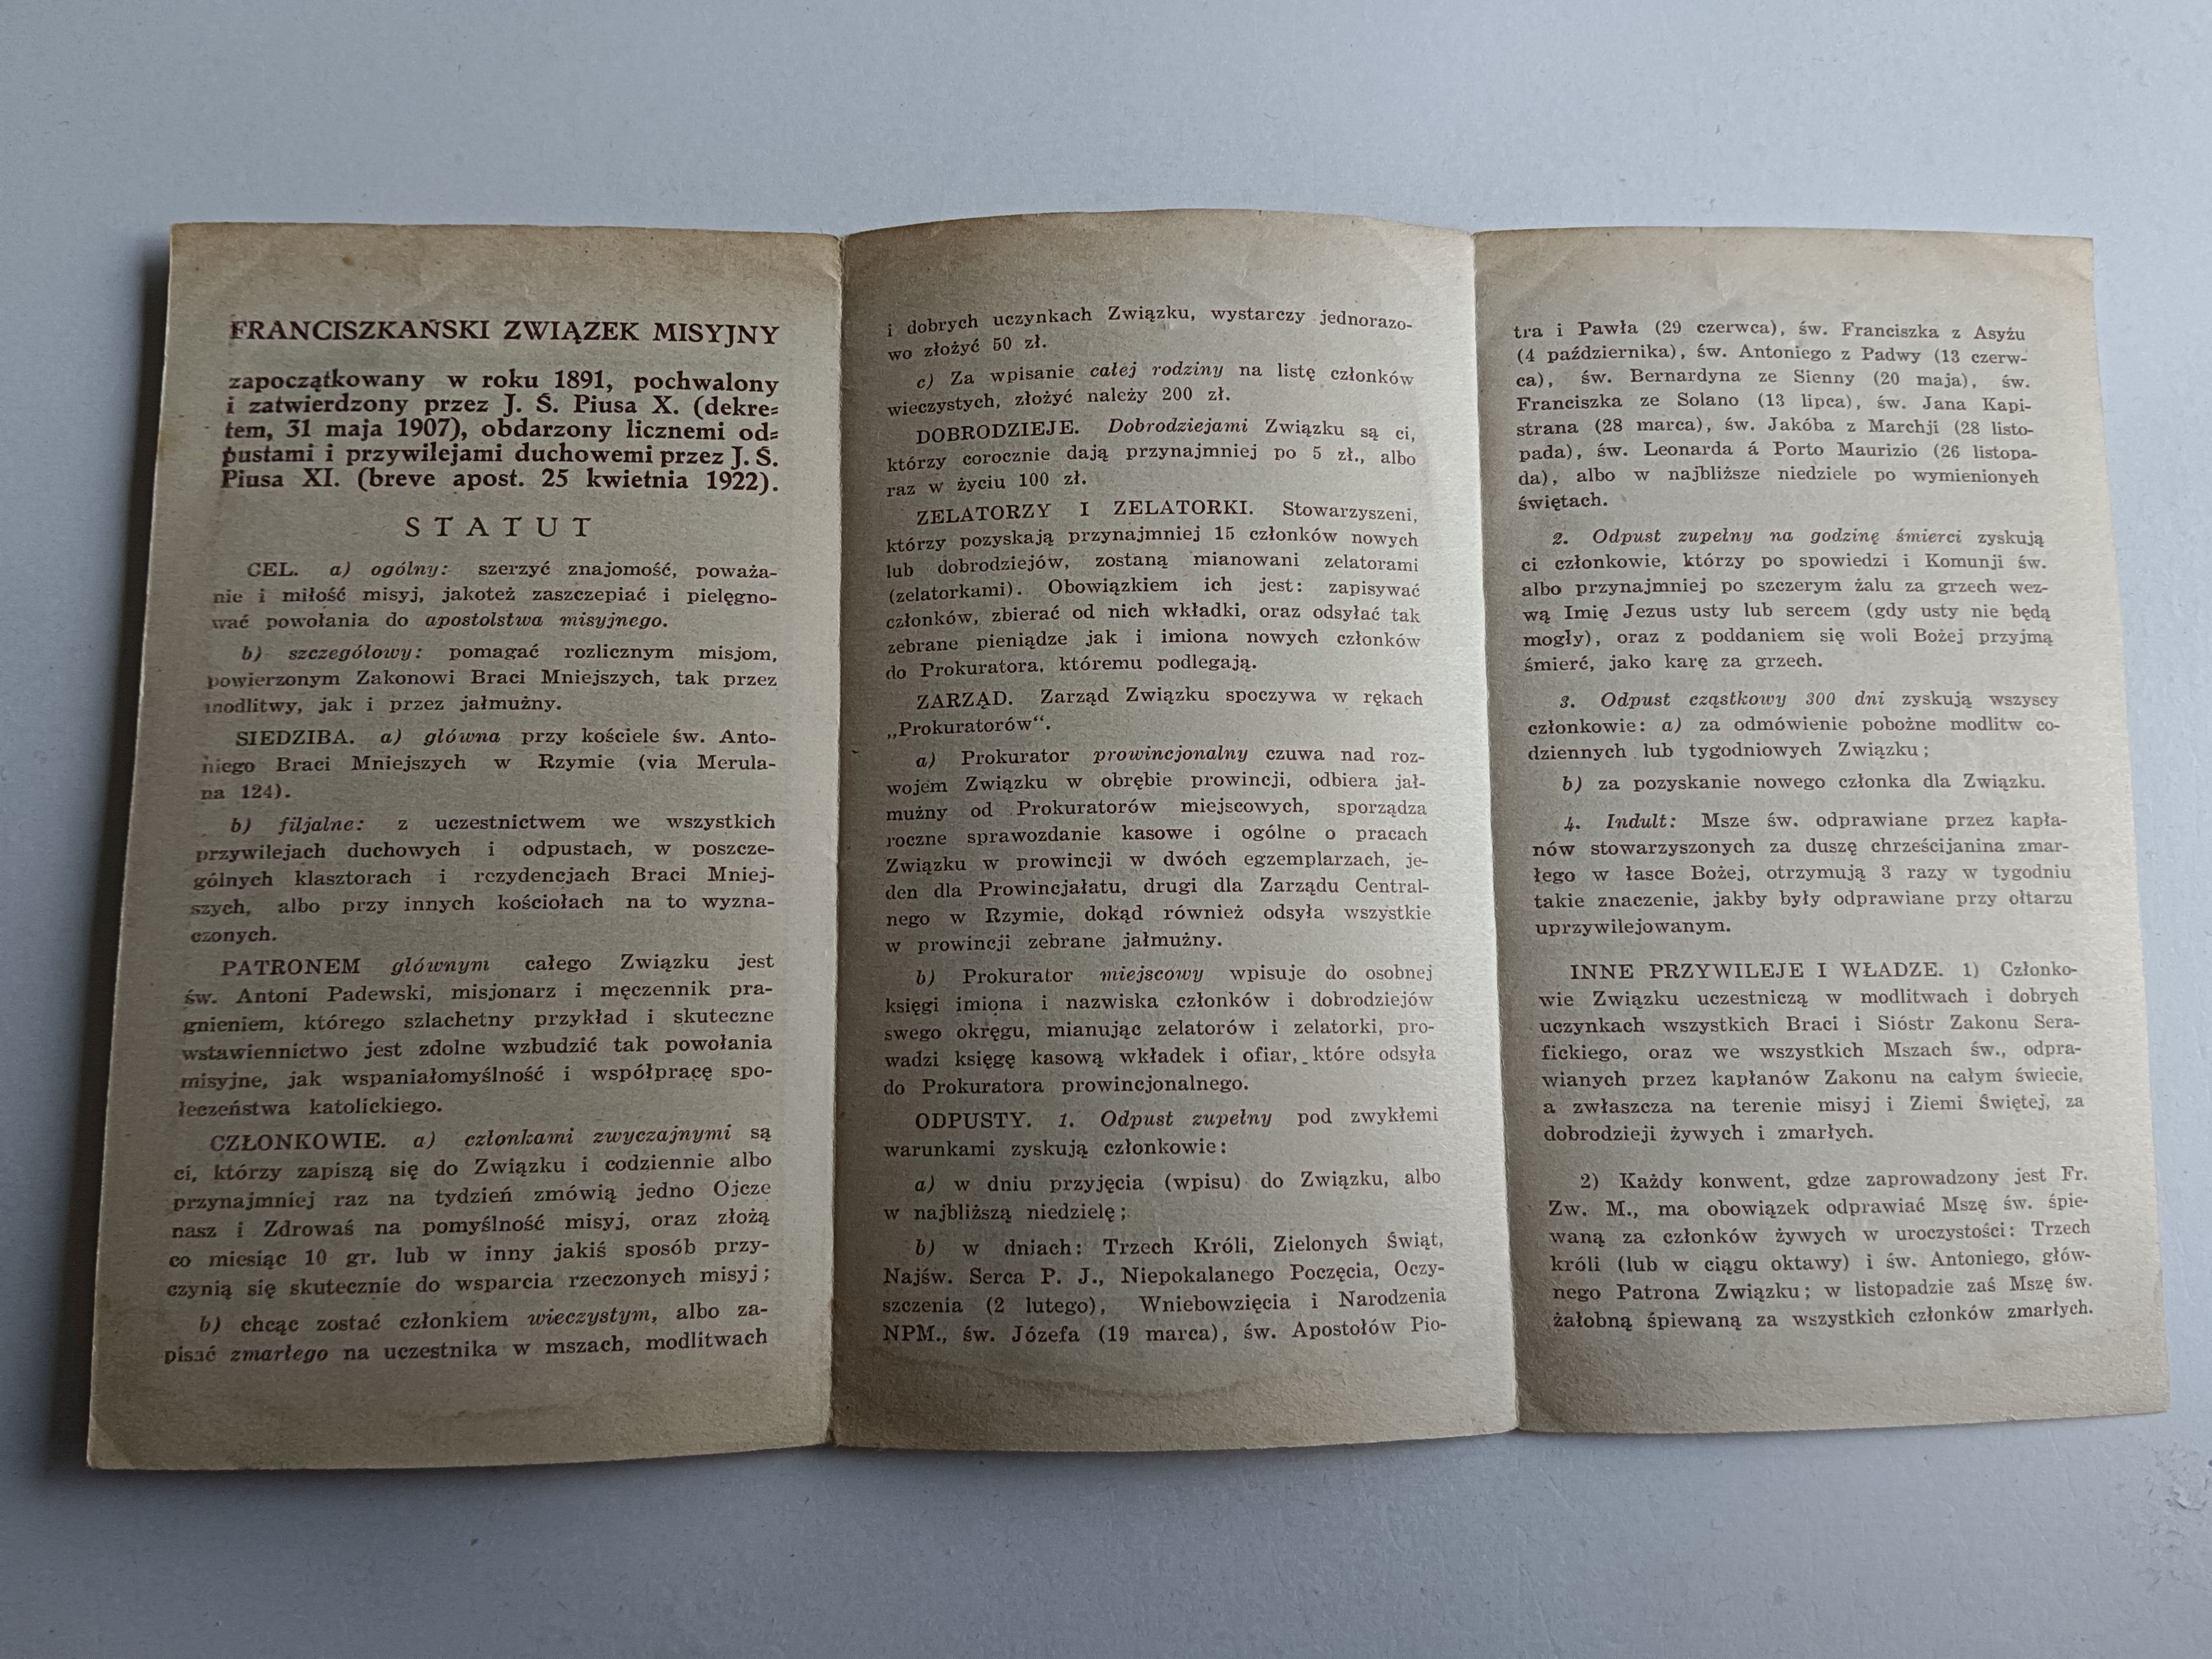 FRANCISZKAŃSKI ZWIĄZEK MISYJNY
zapoczątkowany w roku 1891, pochwalony
i zatwierdzony przez J. Ś. Piusa X. (dekre=
tem, 31 maja 1907), obdarzony licznemi od=
pustami i przywilejami duchowemi przez J. Ś.
Piusa XI. (breve apost. 25 kwietnia 1922).
STATUT
CEL. a) ogólny: szerzyć znajomość, poważa-
nie i miłość misyj, jakoteż zaszczepiać i pielęgno-
wać powołania do apostolstwa misyjnego.
b) szczegółowy: pomagać rozlicznym misjom,
powierzonym Zakonowi Braci Mniejszych, tak przez
modlitwy, jak i przez jałmużny.
SIEDZIBA. a) główna przy kościele św. Anto-
niego Braci Mniejszych w Rzymie (via Merula-
na 124).
b) filjalne: z uczestnictwem we wszystkich
przywilejach duchowych i odpustach, w poszcze-
gólnych klasztorach i rezydencjach Braci Mniej-
szych, albo przy innych kościołach na to wyzna-
czonych.
PATRONEM głównym całego Związku jest
św. Antoni Padewski, misjonarz i męczennik pra-
gnieniem, którego szlachetny przykład i skuteczne
wstawiennictwo jest zdolne wzbudzić tak powołania
misyjne, jak wspaniałomyślność i współpracę spo-
łeczeństwa katolickiego.
CZŁONKOWIE. a) członkami zwyczajnymi są
ci, którzy zapiszą się do Związku i codziennie albo
przynajmniej raz na tydzień zmówią jedno Ojcze
nasz i Zdrowaś na pomyślność misyj, oraz złożą
co miesiąc 10 gr. lub w inny jakiś sposób przy-
czynią się skutecznie do wsparcia rzeczonych misyj;
b) chcąc zostać członkiem wieczystym, albo za-
pisać zmarłego na uczestnika w mszach, modlitwach
i dobrych uczynkach Związku, wystarczy jednorazo-
wo złożyć 50 zł.
c) Za wpisanie całej rodziny na listę członków
wieczystych, złożyć należy 200 zł.
DOBRODZIEJE. Dobrodziejami Związku są ci,
którzy corocznie dają przynajmniej po 5 zł., albo
raz w życiu 100 zł.
ZELATORZY I ZELATORKI. Stowarzyszeni,
którzy pozyskają przynajmniej 15 członków nowych
lub dobrodziejów, zostaną mianowani zelatorami
(zelatorkami). Obowiązkiem ich jest: zapisywać
członków, zbierać od nich wkładki, oraz odsyłać tak
zebrane pieniądze jak i imiona nowych członków
do Prokuratora, któremu podlegają.
ZARZĄD. Zarząd Związku spoczywa w rękach
„Prokuratorów“.
a) Prokurator prowincjonalny czuwa nad roz-
wojem Związku w obrębie prowincji, odbiera jał-
mużny od Prokuratorów miejscowych, sporządza
roczne sprawozdanie kasowe i ogólne o pracach
Związku w prowincji w dwóch egzemplarzach, je-
den dla Prowincjałatu, drugi dla Zarządu Central-
nego w Rzymie, dokąd również odsyła wszystkie
w prowincji zebrane jałmużny.
b) Prokurator miejscowy wpisuje do osobnej
księgi imiona i nazwiska członków i dobrodziejów
swego okręgu, mianując zelatorów i zelatorki, pro-
wadzi księgę kasową wkładek i ofiar, które odsyła
do Prokuratora prowincjonalnego.
ODPUSTY. 1. Odpust zupełny pod zwykłemi
warunkami zyskują członkowie:
a) w dniu przyjęcia (wpisu) do Związku, albo
w najbliższą niedzielę;
b) w dniach: Trzech Króli, Zielonych Świąt,
Najśw. Serca P. J., Niepokalanego Poczęcia, Oczy-
szczenia (2 lutego), Wniebowzięcia i Narodzenia
NPM., św. Józefa (19 marca), św. Apostołów Pio-
tra i Pawła (29 czerwca), św. Franciszka z Asyżu
(4 października), św. Antoniego z Padwy (13 czerw-
ca), św. Bernardyna ze Sienny (20 maja), św.
Franciszka ze Solano (13 lipca), św. Jana Kapi-
strana (28 marca), św. Jakóba z Marchji (28 listo-
pada), św. Leonarda á Porto Maurizio (26 listopa-
da), albo w najbliższe niedziele po wymienionych
świętach.
2. Odpust zupełny na godzinę śmierci zyskują
ci członkowie, którzy po spowiedzi i Komunji św.
albo przynajmniej po szczerym żalu za grzech wez-
wą Imię Jezus usty lub sercem (gdy usty nie będą
mogły), oraz z poddaniem się woli Bożej przyjmą
śmierć, jako karę za grzech.
3. Odpust cząstkowy 300 dni zyskują wszyscy
członkowie: a) za odmówienie pobożne modlitw co-
dziennych lub tygodniowych Związku;
b) za pozyskanie nowego członka dla Związku.
4. Indult: Msze św. odprawiane przez kapła-
nów stowarzyszonych za duszę chrześcijanina zmar-
łego w łasce Bożej, otrzymują 3 razy w tygodniu
takie znaczenie, jakby były odprawiane przy ołtarzu
uprzywilejowanym.
INNE PRZYWILEJE I WŁADZE. 1) Członko-
wie Związku uczestniczą w modlitwach i dobrych
uczynkach wszystkich Braci i Sióstr Zakonu Sera-
fickiego, oraz we wszystkich Mszach św., odpra-
wianych przez kapłanów Zakonu na całym świecie,
a zwłaszcza na terenie misyj i Ziemi Świętej, za
dobrodzieji żywych i zmarłych.
2) Każdy konwent, gdzie zaprowadzony jest Fr.
Zw. M., ma obowiązek odprawiać Mszę św. śpie-
waną za członków żywych w uroczystości: Trzech
króli (lub w ciągu oktawy) i św. Antoniego, głów-
nego Patrona Związku; w listopadzie zaś Mszę św.
żałobną śpiewaną za wszystkich członków zmarłych.